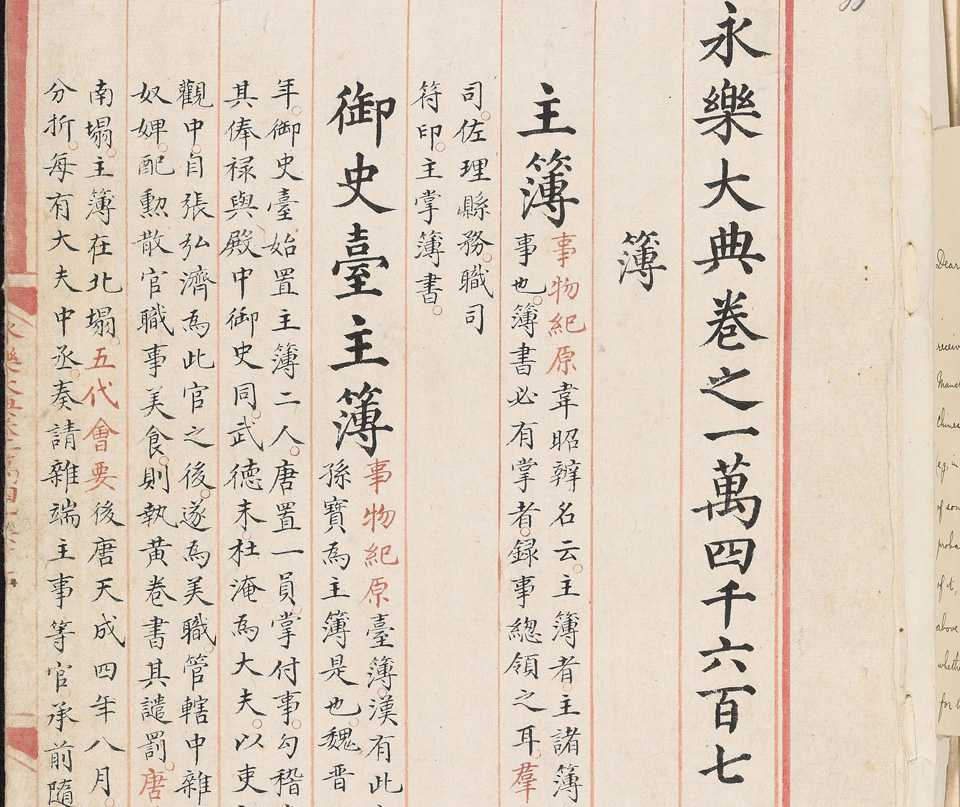 永樂大典卷之一萬四千六百七
簿
主簿
事物紀原韋昭辨名云主簿者主諸簿
事也簿書必有掌者録事總領之耳羣
司佐理縣務職司
符印主掌簿書
御史臺主簿
事物紀原臺簿漢有此
孫寶為主簿是也魏晋
年御史臺始置主簿二人唐置一員掌付事勾稽
其俸禄與殿中御史同武德末杜淹為大夫以吏
觀中自張弘濟為此官之後遂為美職管轄中雜
奴婢配勲散官職事美食則執黄卷書其譴罰唐
南塌主簿在北塌五代會要後唐天成四年八月
分折每有大夫中丞奏請雜端主事等官承前隨
Dear
receiv
Manch
Chines
e.g. in
of som
proba
of it,
above
wheth
for